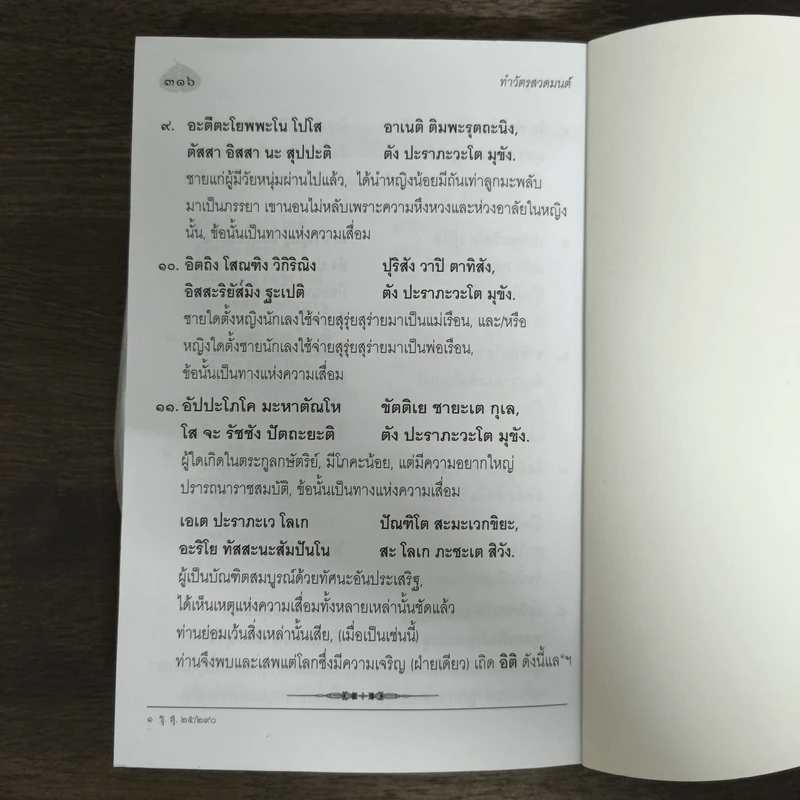 ๓๑๖
ทำวัตรสวดมนต์
๙. อะตีตะโยพพะโน โปโส อาเนติ ติมพะรุตถะนิง,
ตัสสา อิสสา นะ สุปปะติ ตัง ปะราภะวะโต มุขัง.
ชายแก่ผู้มีวัยหนุ่มผ่านไปแล้ว, ได้นำหญิงน้อยมีถันเท่าลูกมะพลับ
มาเป็นภรรยา เขานอนไม่หลับเพราะความหึงหวงและห่วงอาลัยในหญิง
นั้น, ข้อนั้นเป็นทางแห่งความเสื่อม
๑๐. อิตถิง โสณฑิง วิกิริณิง ปุริสัง วาปิ ตาทิสัง,
อิสสะริยัส๎มิง ฐะเปติ ตัง ปะราภะวะโต มุขัง.
ชายใดตั้งหญิงนักเลงใช้จ่ายสุรุ่ยสุร่ายมาเป็นแม่เรือน, และ/หรือ
หญิงใดตั้งชายนักเลงใช้จ่ายสุรุ่ยสุร่ายมาเป็นพ่อเรือน,
ข้อนั้นเป็นทางแห่งความเสื่อม
๑๑. อัปปะโภโค มะหาตัณโห ขัตติเย ชายะเต กุเล,
โส จะ รัชชัง ปัตถะยะติ ตัง ปะราภะวะโต มุขัง.
ผู้ใดเกิดในตระกูลกษัตริย์, มีโภคะน้อย, แต่มีความอยากใหญ่
ปรารถนาราชสมบัติ, ข้อนั้นเป็นทางแห่งความเสื่อม
เอเต ปะราภะเว โลเก ปัณฑิโต สะมะเวกขิยะ,
อะริโย ทัสสะนะสัมปันโน สะ โลเก ภะชะเต สิวัง.
ผู้เป็นบัณฑิตสมบูรณ์ด้วยทัศนะอันประเสริฐ,
ได้เห็นเหตุแห่งความเสื่อมทั้งหลายเหล่านั้นชัดแล้ว
ท่านย่อมเว้นสิ่งเหล่านั้นเสีย, (เมื่อเป็นเช่นนี้)
ท่านจึงพบและเสพแต่โลกซึ่งมีความเจริญ (ฝ่ายเดียว) เถิด อิติ ดังนี้แล๑ฯ
๑ ขุ. สุ. ๒๕/๒๙๐